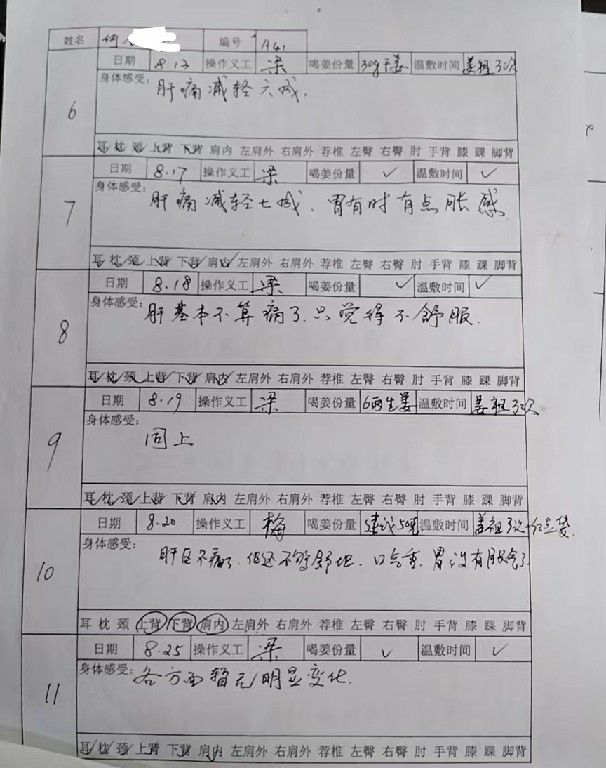 姓名 编号 A41
6 日期 8.13 操作义工 梁 喝姜份量 30g干姜 温敷时间 姜祖3次
身体感受: 肝痛减轻六成.
耳 枕 颈 上背 下背 肩内 左肩外 右肩外 荐椎 左臀 右臀 肘 手背 膝 踝 脚背
7 日期 8.17 操作义工 梁 喝姜份量 ✓ 温敷时间 ✓
身体感受: 肝痛减轻七成. 胃有时有点胀感
耳 枕 颈 上背 下背 肩内 左肩外 右肩外 荐椎 左臀 右臀 肘 手背 膝 踝 脚背
8 日期 8.18 操作义工 梁 喝姜份量 ✓ 温敷时间 ✓
身体感受: 肝基本不算痛了.只觉得不舒服.
耳 枕 颈 上背 下背 肩内 左肩外 右肩外 荐椎 左臀 右臀 肘 手背 膝 踝 脚背
9 日期 8.19 操作义工 梁 喝姜份量 6两生姜 温敷时间 姜祖3次
身体感受: 同上
耳 枕 颈 上背 下背 肩内 左肩外 右肩外 荐椎 左臀 右臀 肘 手背 膝 踝 脚背
10 日期 8.20 操作义工 梅 喝姜份量 建议50g 温敷时间 姜祖3次+红豆袋
身体感受: 肝区不痛了. 但还不够舒坦. 口气重. 胃没有胀气了
耳 枕 颈 上背 下背 肩内 左肩外 右肩外 荐椎 左臀 右臀 肘 手背 膝 踝 脚背
11 日期 8.25 操作义工 梁 喝姜份量 ✓ 温敷时间 ✓
身体感受: 各方面暂无明显变化.
耳 枕 颈 上背 下背 肩内 左肩外 右肩外 荐椎 左臀 右臀 肘 手背 膝 踝 脚背